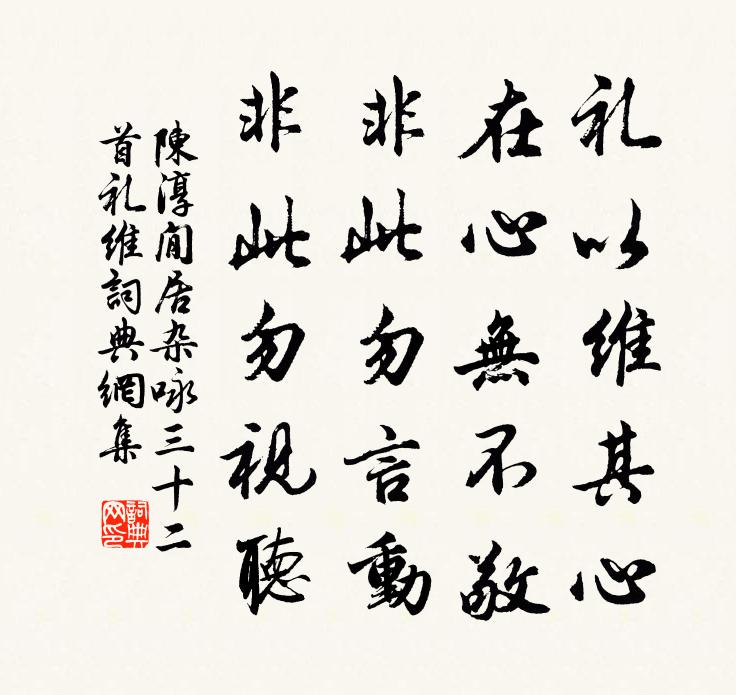 礼以維其心
在心無不敬
非此勿言動
非此勿視聽
陳淳閒居杂咏三十二
首礼維詞典網集
詞典
网印